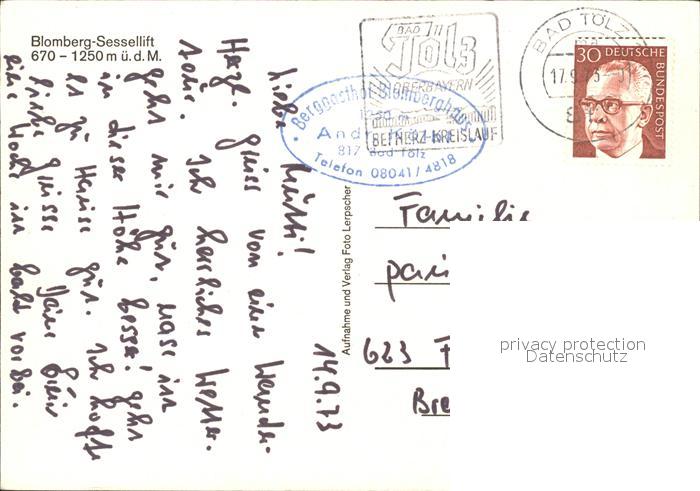 Blomberg-Sessellift
670 – 1250 m ü. d. M.
BAD
Tölz
OBERBAYERN
BEI HERZ-KREISLAUF
BAD TÖLZ
17.9.73
30 DEUTSCHE
BUNDESPOST
Berggasthof Blomberghaus
817 Bad Tölz
Telefon 08041/4818
Aufnahme und Verlag Foto Lerpscher
14.9.73
Liebe Mutti!
Herzl. Gruss von einer Wander-
Ich herrliches Wetter.
geht mir gut, was in
in dieser Höhe besser! geht
es zu Hause gut. Ich hoffe
liebe Grüsse Deine
eine Woche ist bald vorbei.
Familie
623 F
Bre
privacy protection
Datenschutz